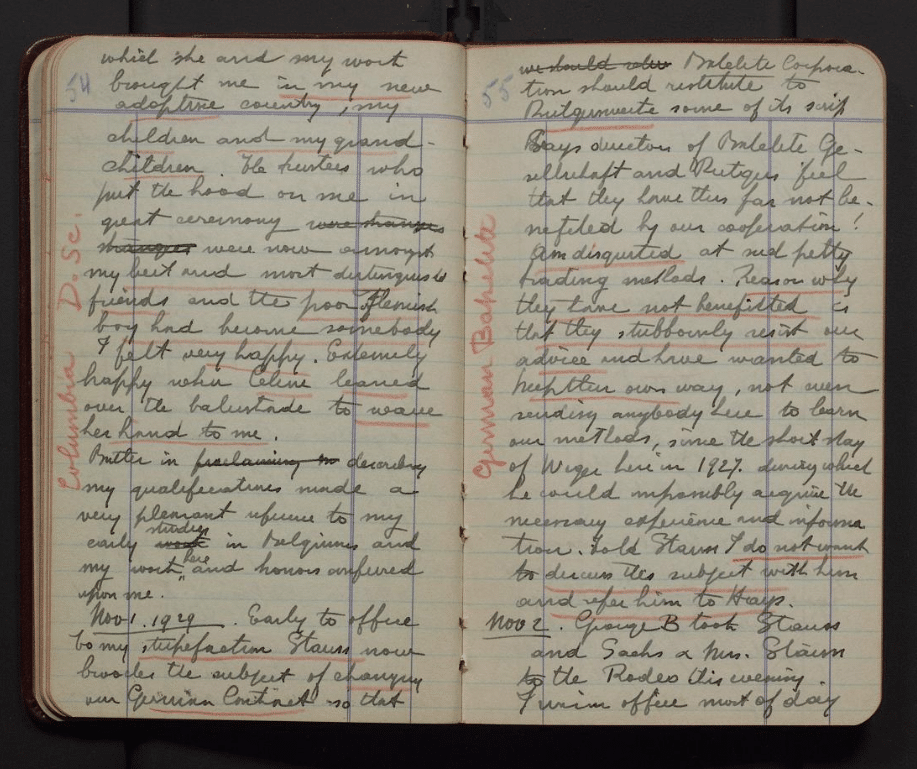 54
which she and my work
brought me in my new
adoptive country, my
children and my grand-
children. The trustees who
put the hood on me in
great ceremony were strangers
strangers were now amongst
my best and most distinguished
friends and the poor Flemish
boy had become somebody
I felt very happy. Extremely
happy when Celine leaned
over the balustrade to wave
her hand to me.
Butler in proclaiming describing
my qualifications made a
very pleasant reference to my
studies
early work in Belgium and
here
my work and honors conferred
upon me.
Nov 1. 1929. Early to office
to my stupefaction Stauss now
broaches the subject of changing
our German Contract so that
Columbia D. Sc.
55
we should Bakelite Corpora-
tion should restitute to
Rutgerswerke some of its scrip
Says directors of Bakelite Ge-
sellschaft and Rutgers feel
that they have thus far not be-
nefited by our cooperation!
Am disgusted at such petty
trading methods. Reason why
they have not benefitted is
that they stubbornly resist our
advice and have wanted to
keep their own way, not even
sending anybody here to learn
our methods, since the short stay
of Weger here in 1927. during which
he could impossibly acquire the
necessary experience and informa
tion. Told Stauss I do not want
to discuss this subject with him
and refer him to Hays.
Nov 2. George B took Stauss
and Sachs & Mrs. Stauss
to the Rodeo this evening.
I was in office most of day
German Bakelite